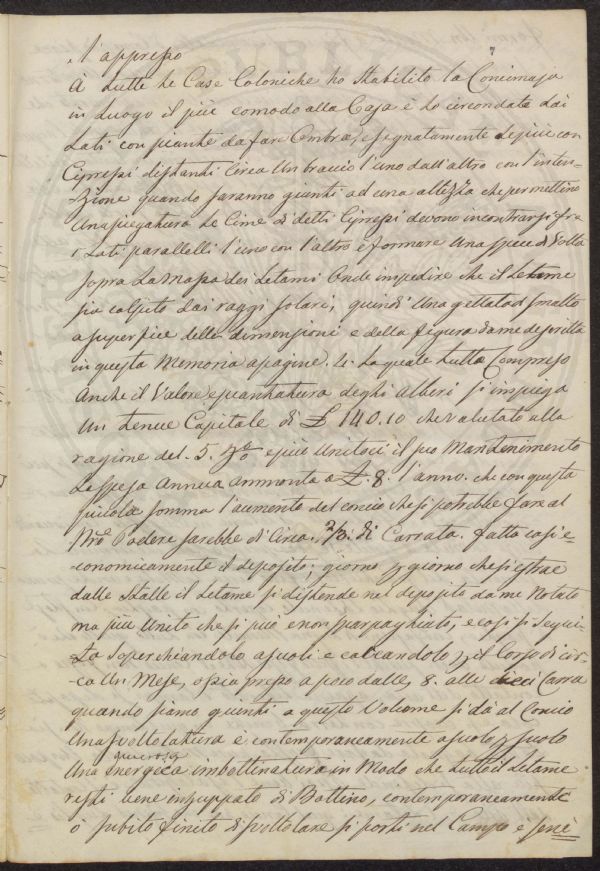 7
l'appresso
A tutte le Case Coloniche ho stabilito la Concimaja
in luogo il più comodo alla Casa è ho circondata dai
Lati con piante da fare Ombra, e segnatamente le più con
Cipressi distanti Circa Un braccio l'uno dall'altro con l'inten-
zione quando saranno giunti ad una altezza che permettino
Una piegatura le Cime di detti Cipressi devono incontrarsi fra
i Lati paralleli l'uno con l'altro è formare Una spece di Volta
sopra la massa dei Letami Onde impedire che il Letame
sia colpito dai raggi solari, quindi Una gettata di smalto
a superfice delle dimensioni e della figura da me descritta
in questa Memoria a pagine. 4. La quale tutto Compreso
Anche il Valore e piantatura degli Alberi si impiega
Un tenue Capitale di £ 140.10 che valutato alla
ragione del. 5. e più Unitoci il suo Mantenimento
La spesa Annua ammonta a £. 8. l'anno. che con questa
piccola somma l'aumento del concio che si potrebbe fare al
Podere sarebbe di Circa. 2/3. di Carrata. fatto così e-
conomicamente il deposito; giorno giorno che si estrae
dalle stalle il Letame si distende nel deposito da me Notato
ma più Unito che si può e non sparpagliato, e così si segui-
ta soperchiandolo a suoli e calcandolo il Corso di cir-
ca Un Mese, o sia presso a poco dalle, 8. alle dieci Carra
quando siamo giunti a questo Volume si dà al Concio
Una svoltolatura è contemporaneamente a suolo suolo
Una generosa energica imbottinatura in Modo che tutto il Letame
resti bene inzuppato di Bottino, contemporaneamente
ò subito finito di svoltolare si porti nel Campo è